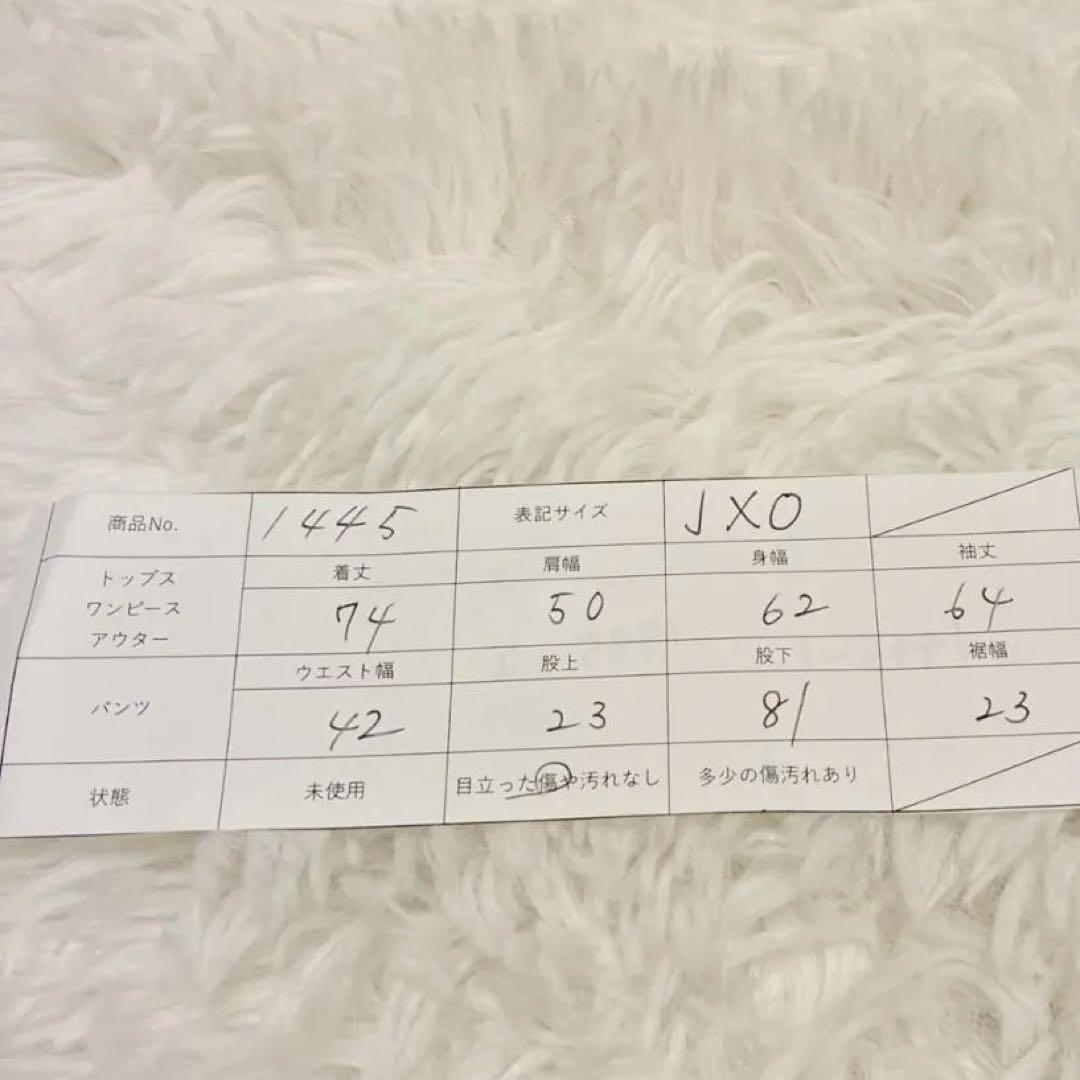 商品No. 1445 表記サイズ JXO
トップス
ワンピース
アウター
着丈 肩幅 身幅 袖丈
74 50 62 64
パンツ
ウエスト幅 股上 股下 裾幅
42 23 81 23
状態 未使用 目立った傷や汚れなし 多少の傷汚れあり